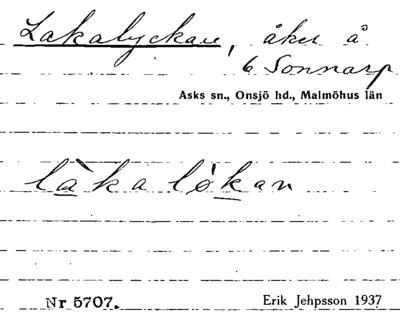 Lakalyckan, åker å
6 Sonnarp
Asks sn., Onsjö hd., Malmöhus län
làkalókan
Nr 5707.
Erik Jehpsson 1937